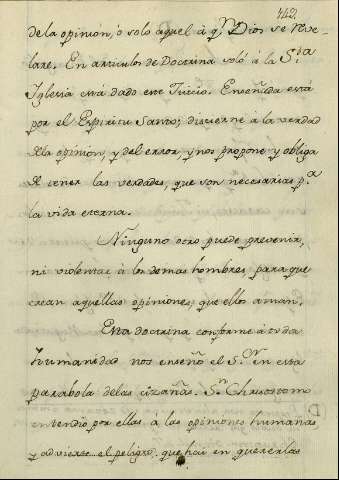 142
de la opinión, ó solo aquel à qn. Dios se reve-
lare. En articulos de Doctrina soló á la Sta.
Iglesia está dado este Juicio. Enseñada está
por el Espiritu Santo; discierne a la verdad
de la opinion, y del error, y nos propone y obliga
à tener las verdades, que son necesarias pa.
la vida eterna.
Ninguno otro puede prevenir,
ni violentar à los demas hombres, para que
crean aquellas opiniones, que ellos aman.
Esta doctrina conforme á toda
humanedad nos enseñó el Sr. en esta
parabola de las cizañas. Sn. Chrisostomo
entendio por ellas á las opiniones humanas
y advierte el peligro, que hai en quererlas